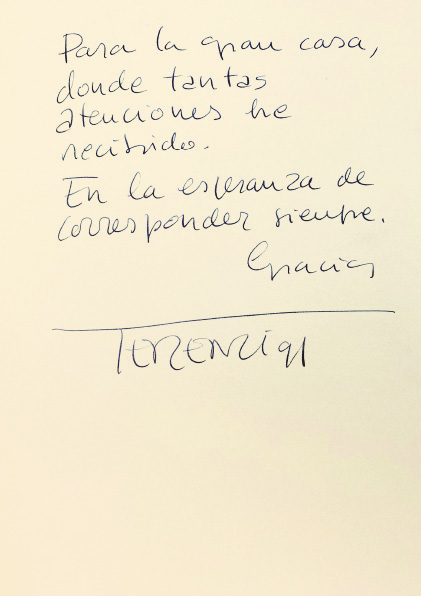 Para la gran casa,
donde tantas
atenciones he
recibido.
En la esperanza de
corresponder siempre.
Gracias
TERENZI 91